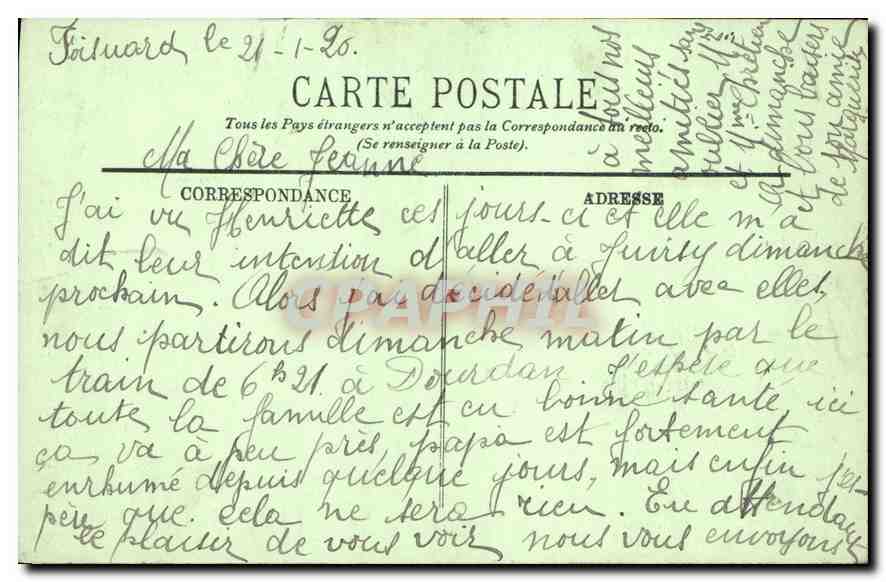 Foisnard le 21-1-20.
CARTE POSTALE
Tous les Pays étrangers n'acceptent pas la Correspondance au recto.
(Se renseigner à la Poste).
Ma Chère Jeanne
CORRESPONDANCE
ADRESSE
J'ai vu Henriette ces jours-ci et elle m'a
dit leur intention d'aller à Juvisy dimanche
prochain. Alors j'ai décidé d'aller avec elles,
nous partirons dimanche matin par le
train de 6h21 à Dourdan J'espère que
toute la famille est en bonne santé, ici
ça va à peu près, papa est fortement
enrhumé depuis quelque jours, mais enfin j'es-
père que cela ne sera rien. En attendant
le plaisir de vous voir nous vous envoyons
à tous nos
meilleurs
amitiés sans
oublier Mr
et Mme Chrétien
à dimanche
et bons baisers
de ton amie
Marguerite
CPAPHIL